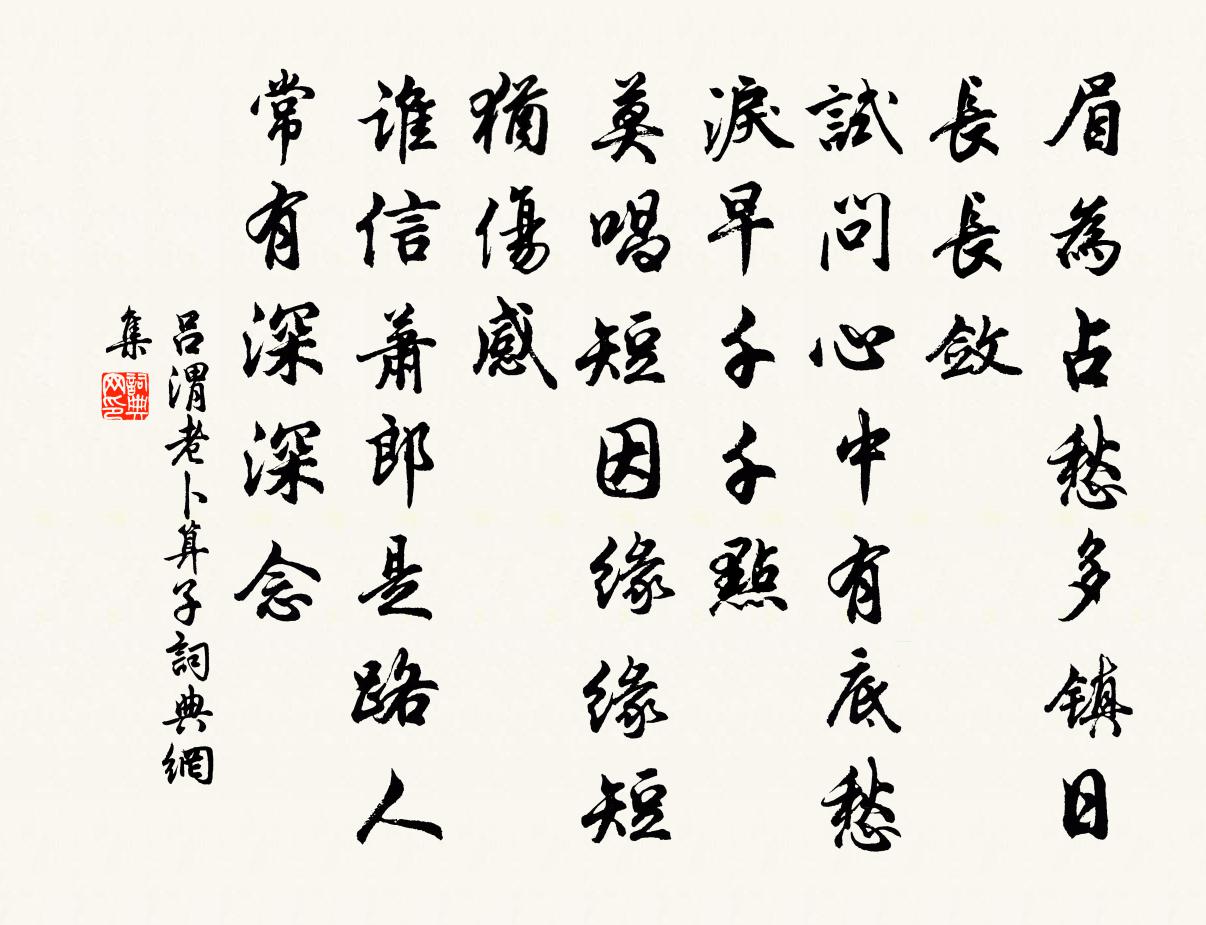 眉為占愁多鎮日
長長斂
試問心中有底愁
淚早千千點
莫唱短因緣緣短
猶傷感
誰信蕭郎是路人
常有深深念
呂渭老卜算子詞典網
集
詞典网印